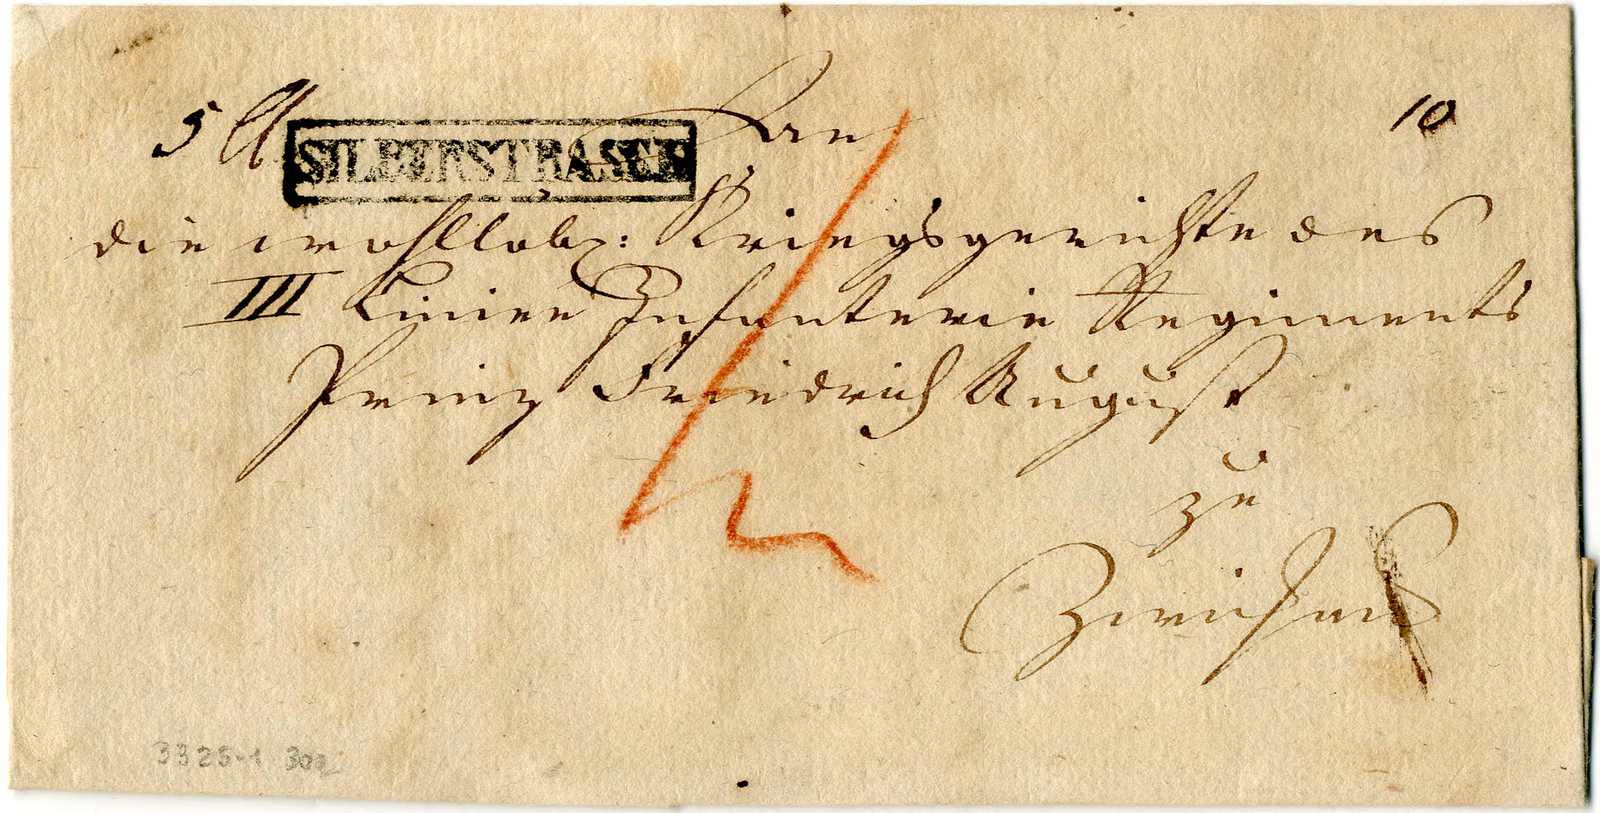 5
SILBERSTRASSE
An
10
die wohllöbl: Kriegsgerichte des
III Linien Infanterie Regiments
Prinz Friedrich August
zu
Zwickau
3325-1 300